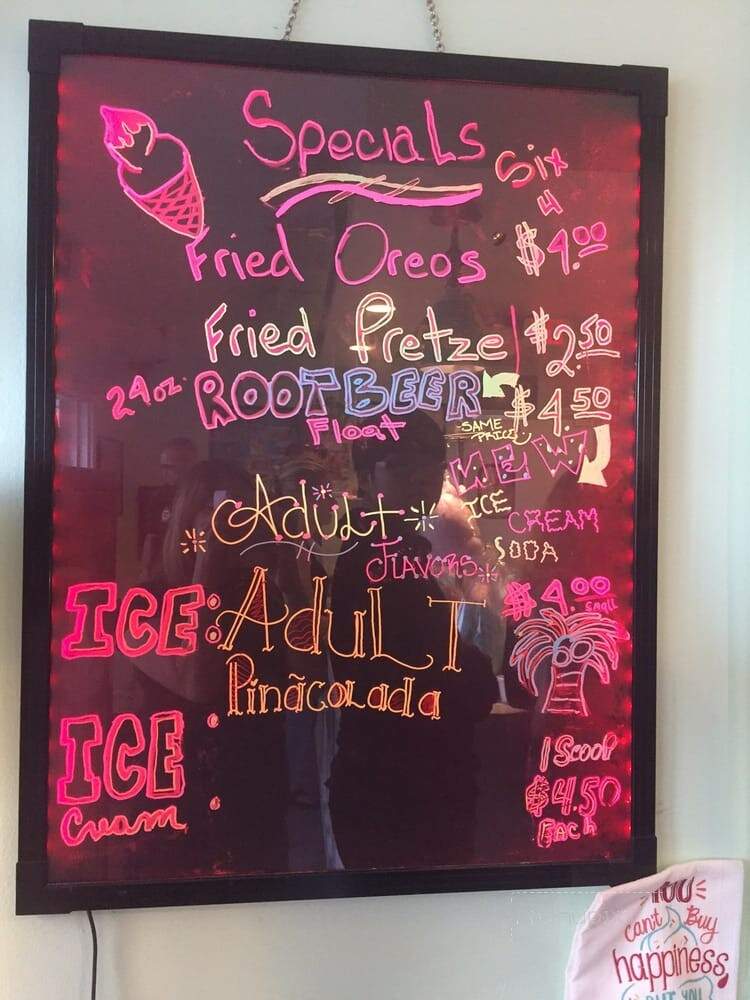 Specials
Six
4
Fried Oreos $4.00
Fried Pretzel $2.50
24oz. ROOTBEER $4.50
Float
SAME
PRICE
NEW
ICE
CREAM
SODA
Adult
Flavors
$4.00
small
ICE: Adult
Pinãcolada
ICE :
Cream
1 Scoop
$4.50
Each
YOU
can't Buy
happiness,
BUT YOU